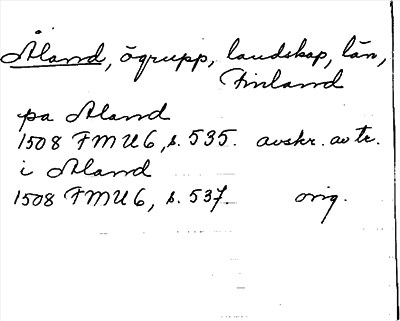 Åland, ögrupp, landskap, län,
Finland
pa Aland
1508 FMU6, s. 535. avskr. av tr.
i Aland
1508 FMU6, s. 537. orig.